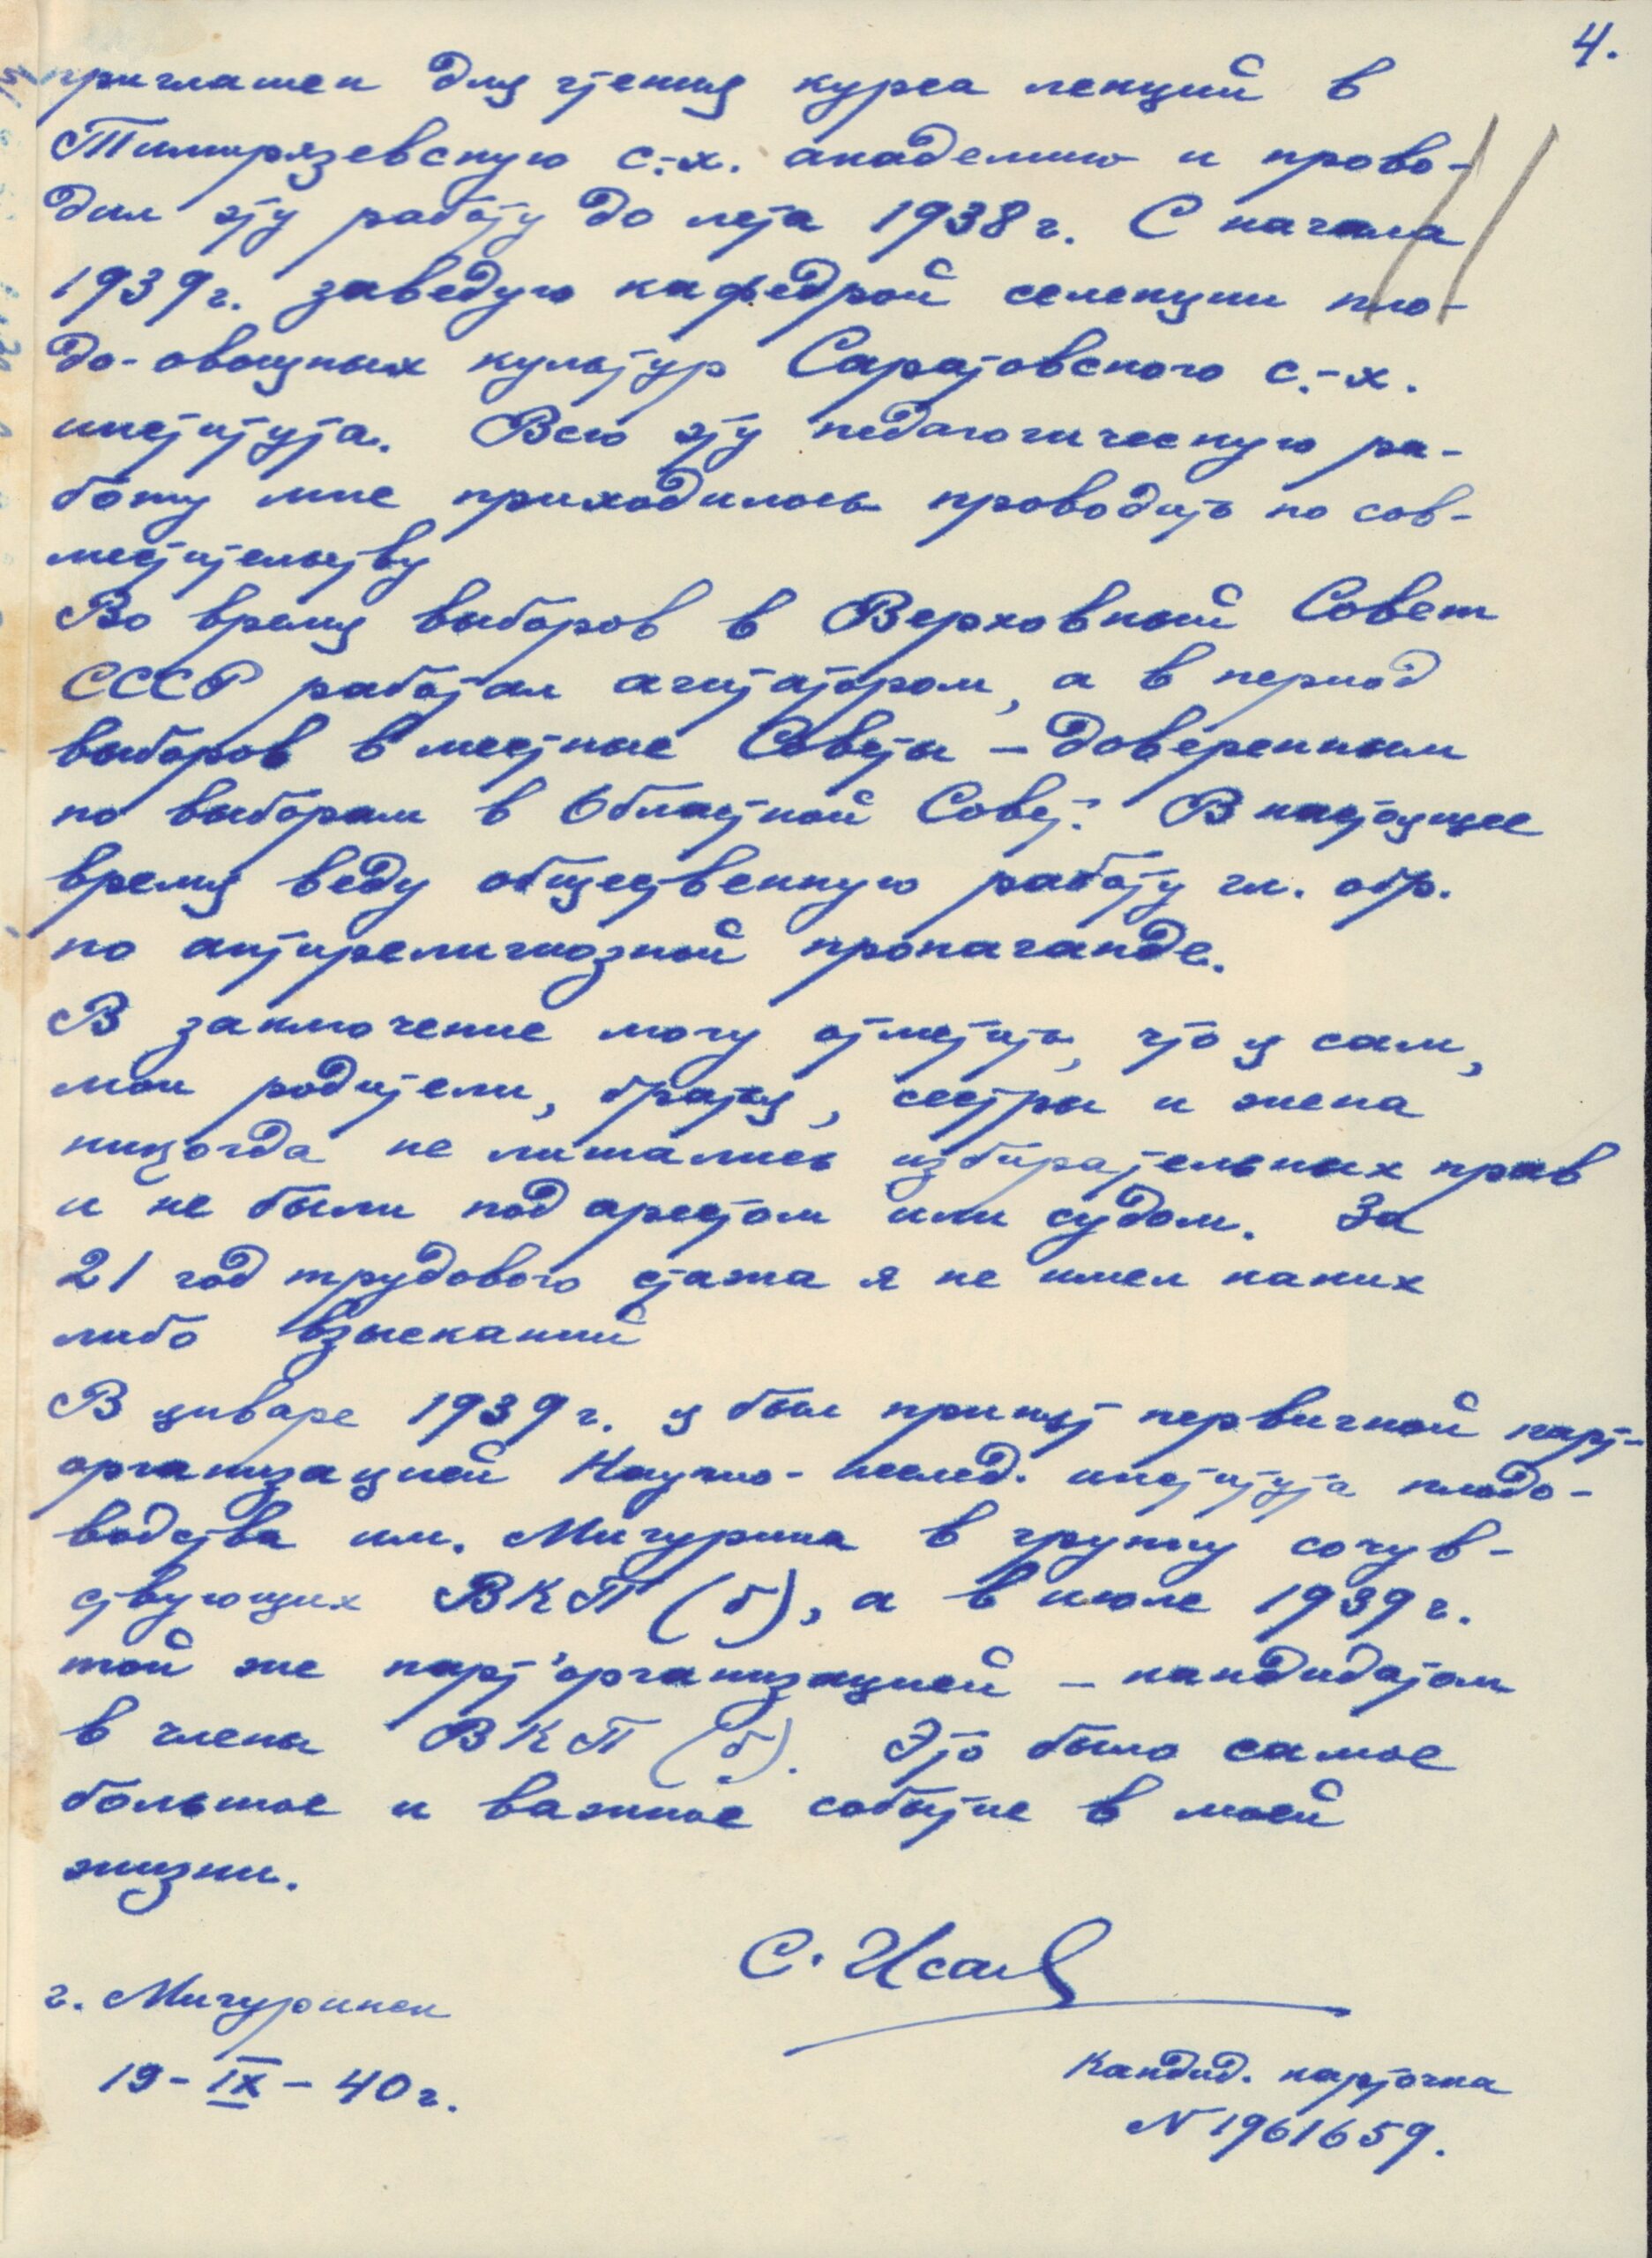 4.
приглашен для чтения курса лекций в
Тимирязевскую с.-х. академию и прово-
дил эту работу до лета 1938 г. С начала
1939 г. заведую кафедрой селекции пло-
до-овощных культур Саратовского с.-х.
института. Всю эту педагогическую ра-
боту мне приходилось проводить по сов-
местительству
Во время выборов в Верховный Совет
СССР работал агитатором, а в период
выборов в местные Советы – доверенным
по выборам в Областной Совет. В настоящее
время веду общественную работу гл. обр.
по антирелигиозной пропаганде.
В заключение могу отметить, что я сам,
мои родители, братья, сестры и жена
никогда не лишались избирательных прав
и не были под арестом или судом. За
21 год трудового стажа я не имел каких
либо взысканий
В январе 1939 г. я был принят первичной парт-
организацией Научно-исслед. института плодо-
водства им. Мичурина в группу сочув-
ствующих ВКП (б), а в июле 1939 г.
той же парт'организацией – кандидатом
в члены ВКП (б). Это было самое
большое и важное событие в моей
жизни.
С. Исаев
г. Мичуринск
19-IX-40 г.
Кандид. карточка
N 1961659.